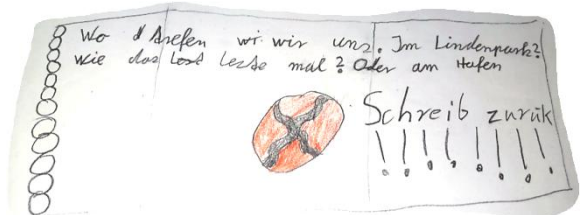 Wo trefen wi wir uns. Im Lindenpark?
wie das lest lezte mal? Oder am Hafen
Schreib zurük
!!!!!!!!